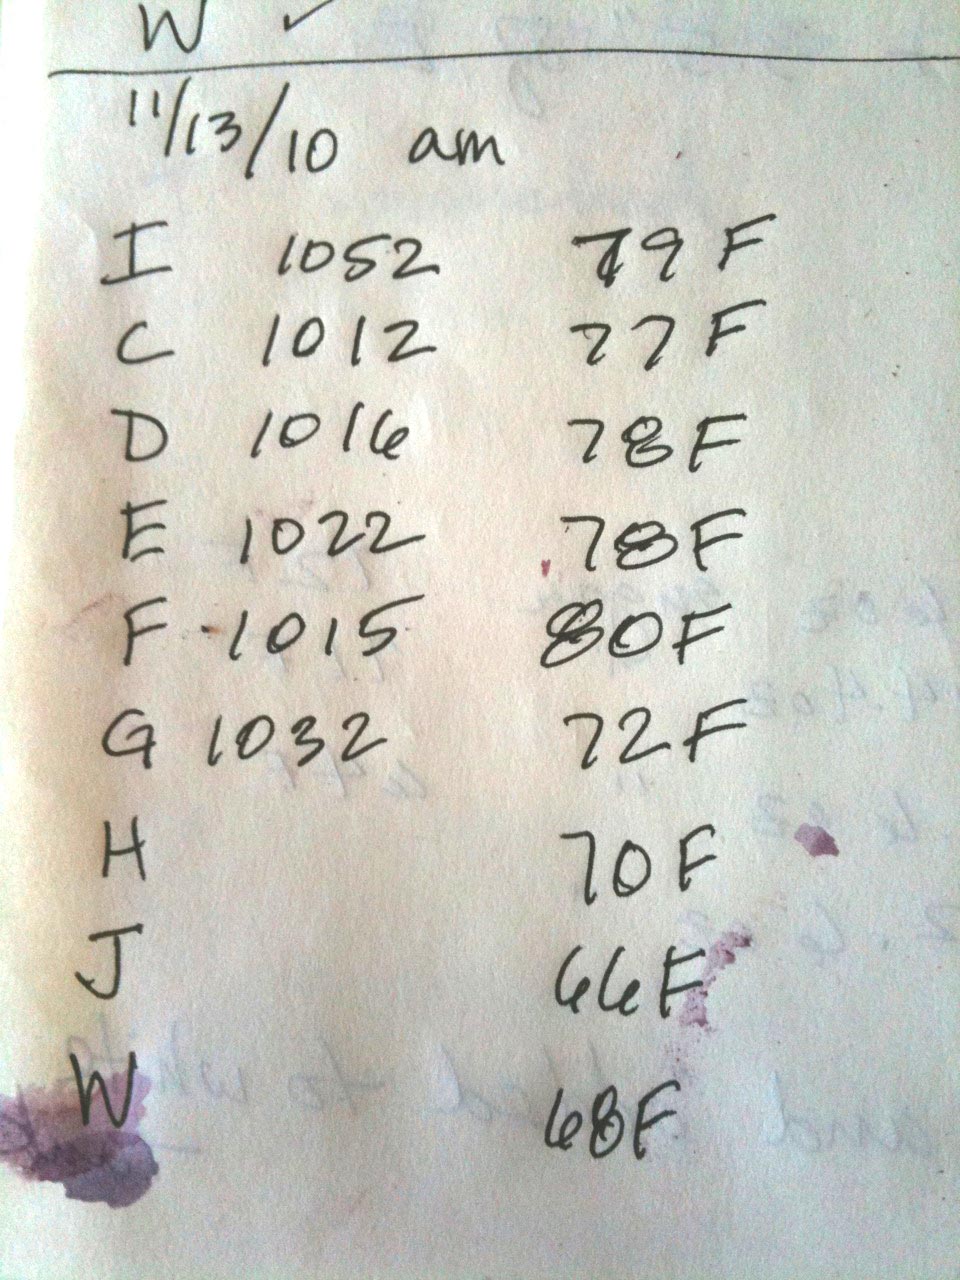 W ✓
11/13/10 am
I 1052 79 F
C 1012 77 F
D 1016 78 F
E 1022 78 F
F 1015 80 F
G 1032 72 F
H 70 F
J 66 F
W 68 F